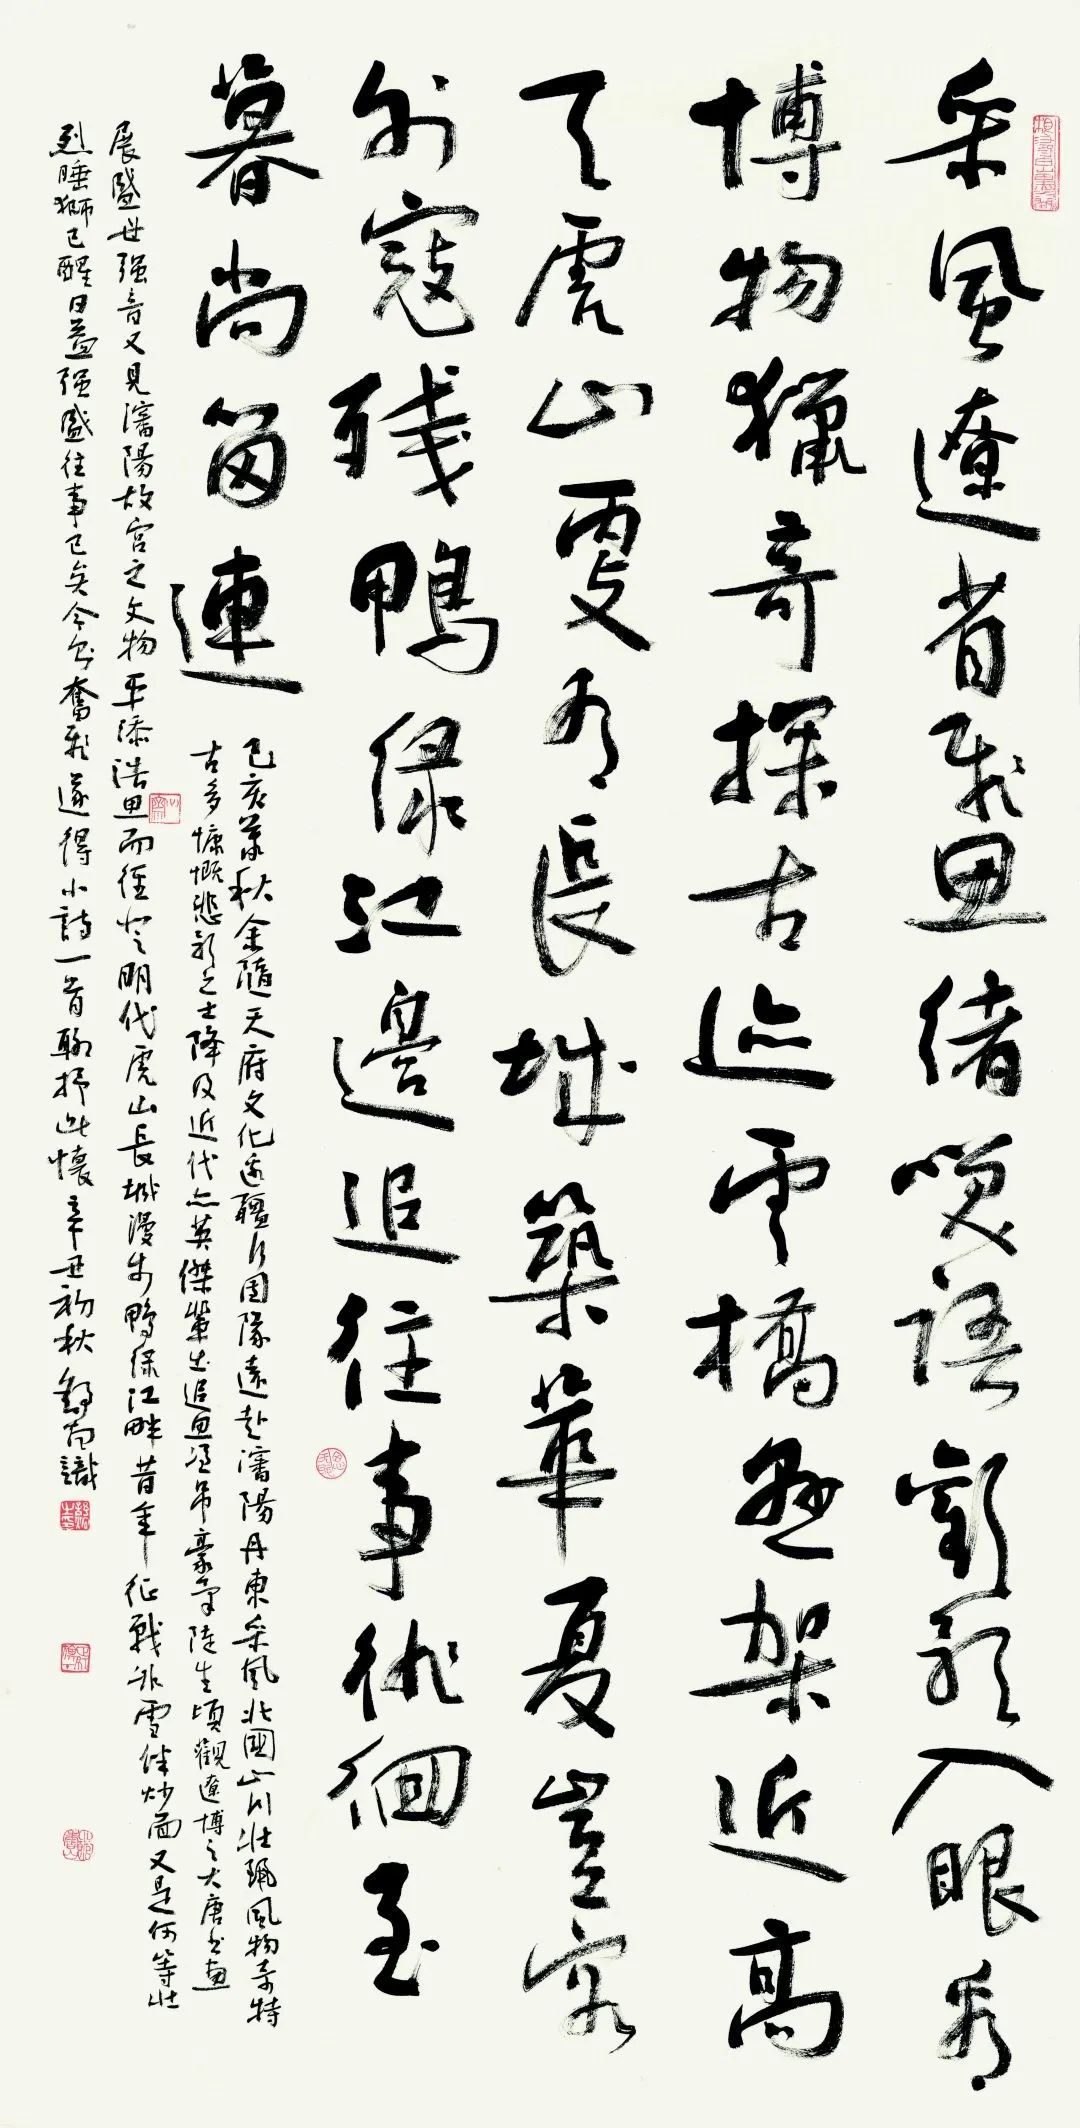 采風遼省飛思緒笑語歡歌入眼看
博物獵奇探古迹雲橋架近高
天虎山更有長城築華夏豈容
外寇残鴨緑江邊追往事徘徊至
暮尚留連
己亥暮秋余隨天府文化邊疆行團隊遠赴瀋陽丹東采風北國山川壯麗風物奇特
古多慷慨悲歌之士降及近代亦英傑輩出追思憑吊豪氣陡生頃觀遼博之大唐書畫
展盛世强音又見瀋陽故宫之文物平添浩思而徑登明代虎山長城漫步鴨緑江畔昔年征戰雪炒面又是何等壯
烈睡獅已醒日益强盛往事已矣今當奮飛遂得小詩一首聊抒此懷辛丑初秋識